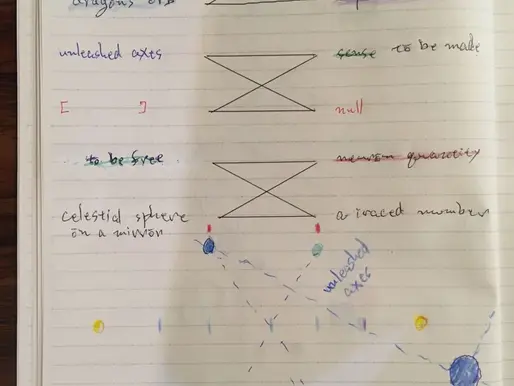 dragons
unleashed axes
sense to be made
[ ]
null
to be free
quantity
celestial sphere
on a mirror
a traced number
unleashed
axes